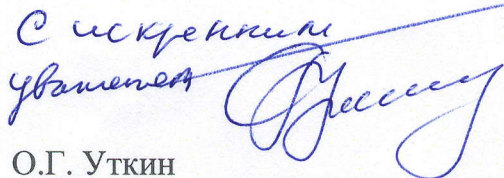 С искренним
уважением
О.Г. Уткин